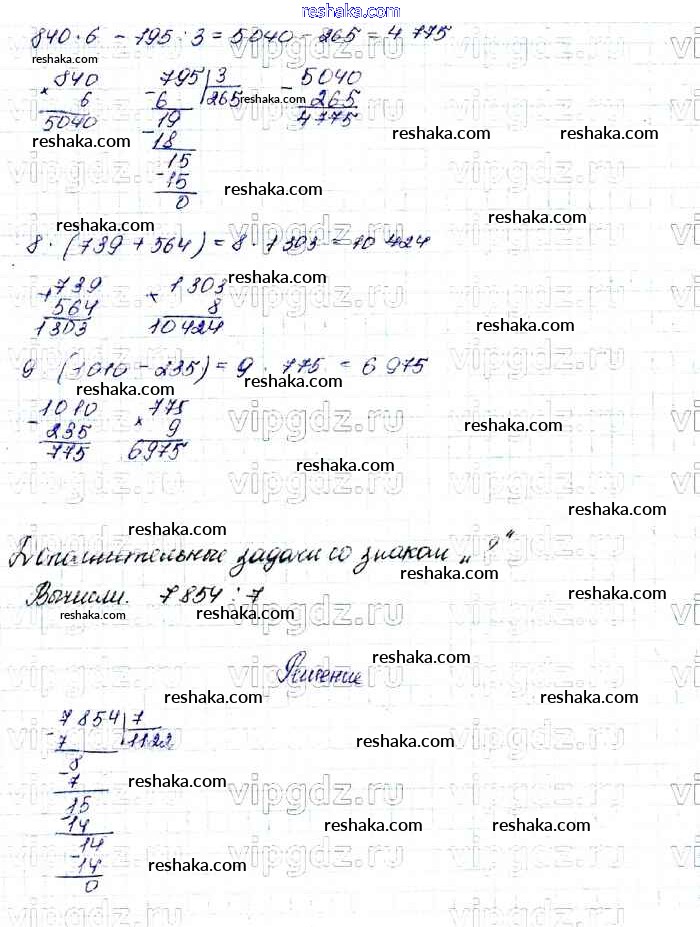 reshaka.com
840 · 6 - 795 : 3 = 5040 - 265 = 4775
reshaka.com
× 840
6
5040
- 795 | 3
6 | 265
19
- 18
15
- 15
0
- 5040
265
4775
reshaka.com
reshaka.com
reshaka.com
vipgdz.ru
reshaka.com
reshaka.com
reshaka.com
8 · (739 + 564) = 8 · 1303 = 10424
reshaka.com
+ 739
564
1303
× 1303
8
10424
reshaka.com
vipgdz.ru
9 · (1010 - 235) = 9 · 775 = 6975
reshaka.com
reshaka.com
- 1010
235
775
× 775
9
6975
reshaka.com
vipgdz.ru
reshaka.com
reshaka.com
Дополнительные задачи со знаком „?“
reshaka.com
Вычисли. 7854 : 7
reshaka.com
reshaka.com
reshaka.com
vipgdz.ru
reshaka.com
Решение
reshaka.com
reshaka.com
- 7854 | 7
7 | 1122
8
- 7
15
- 14
14
- 14
0
vipgdz.ru
reshaka.com
reshaka.com
reshaka.com
reshaka.com
reshaka.com
vipgdz.ru
reshaka.com
vipgdz.ru